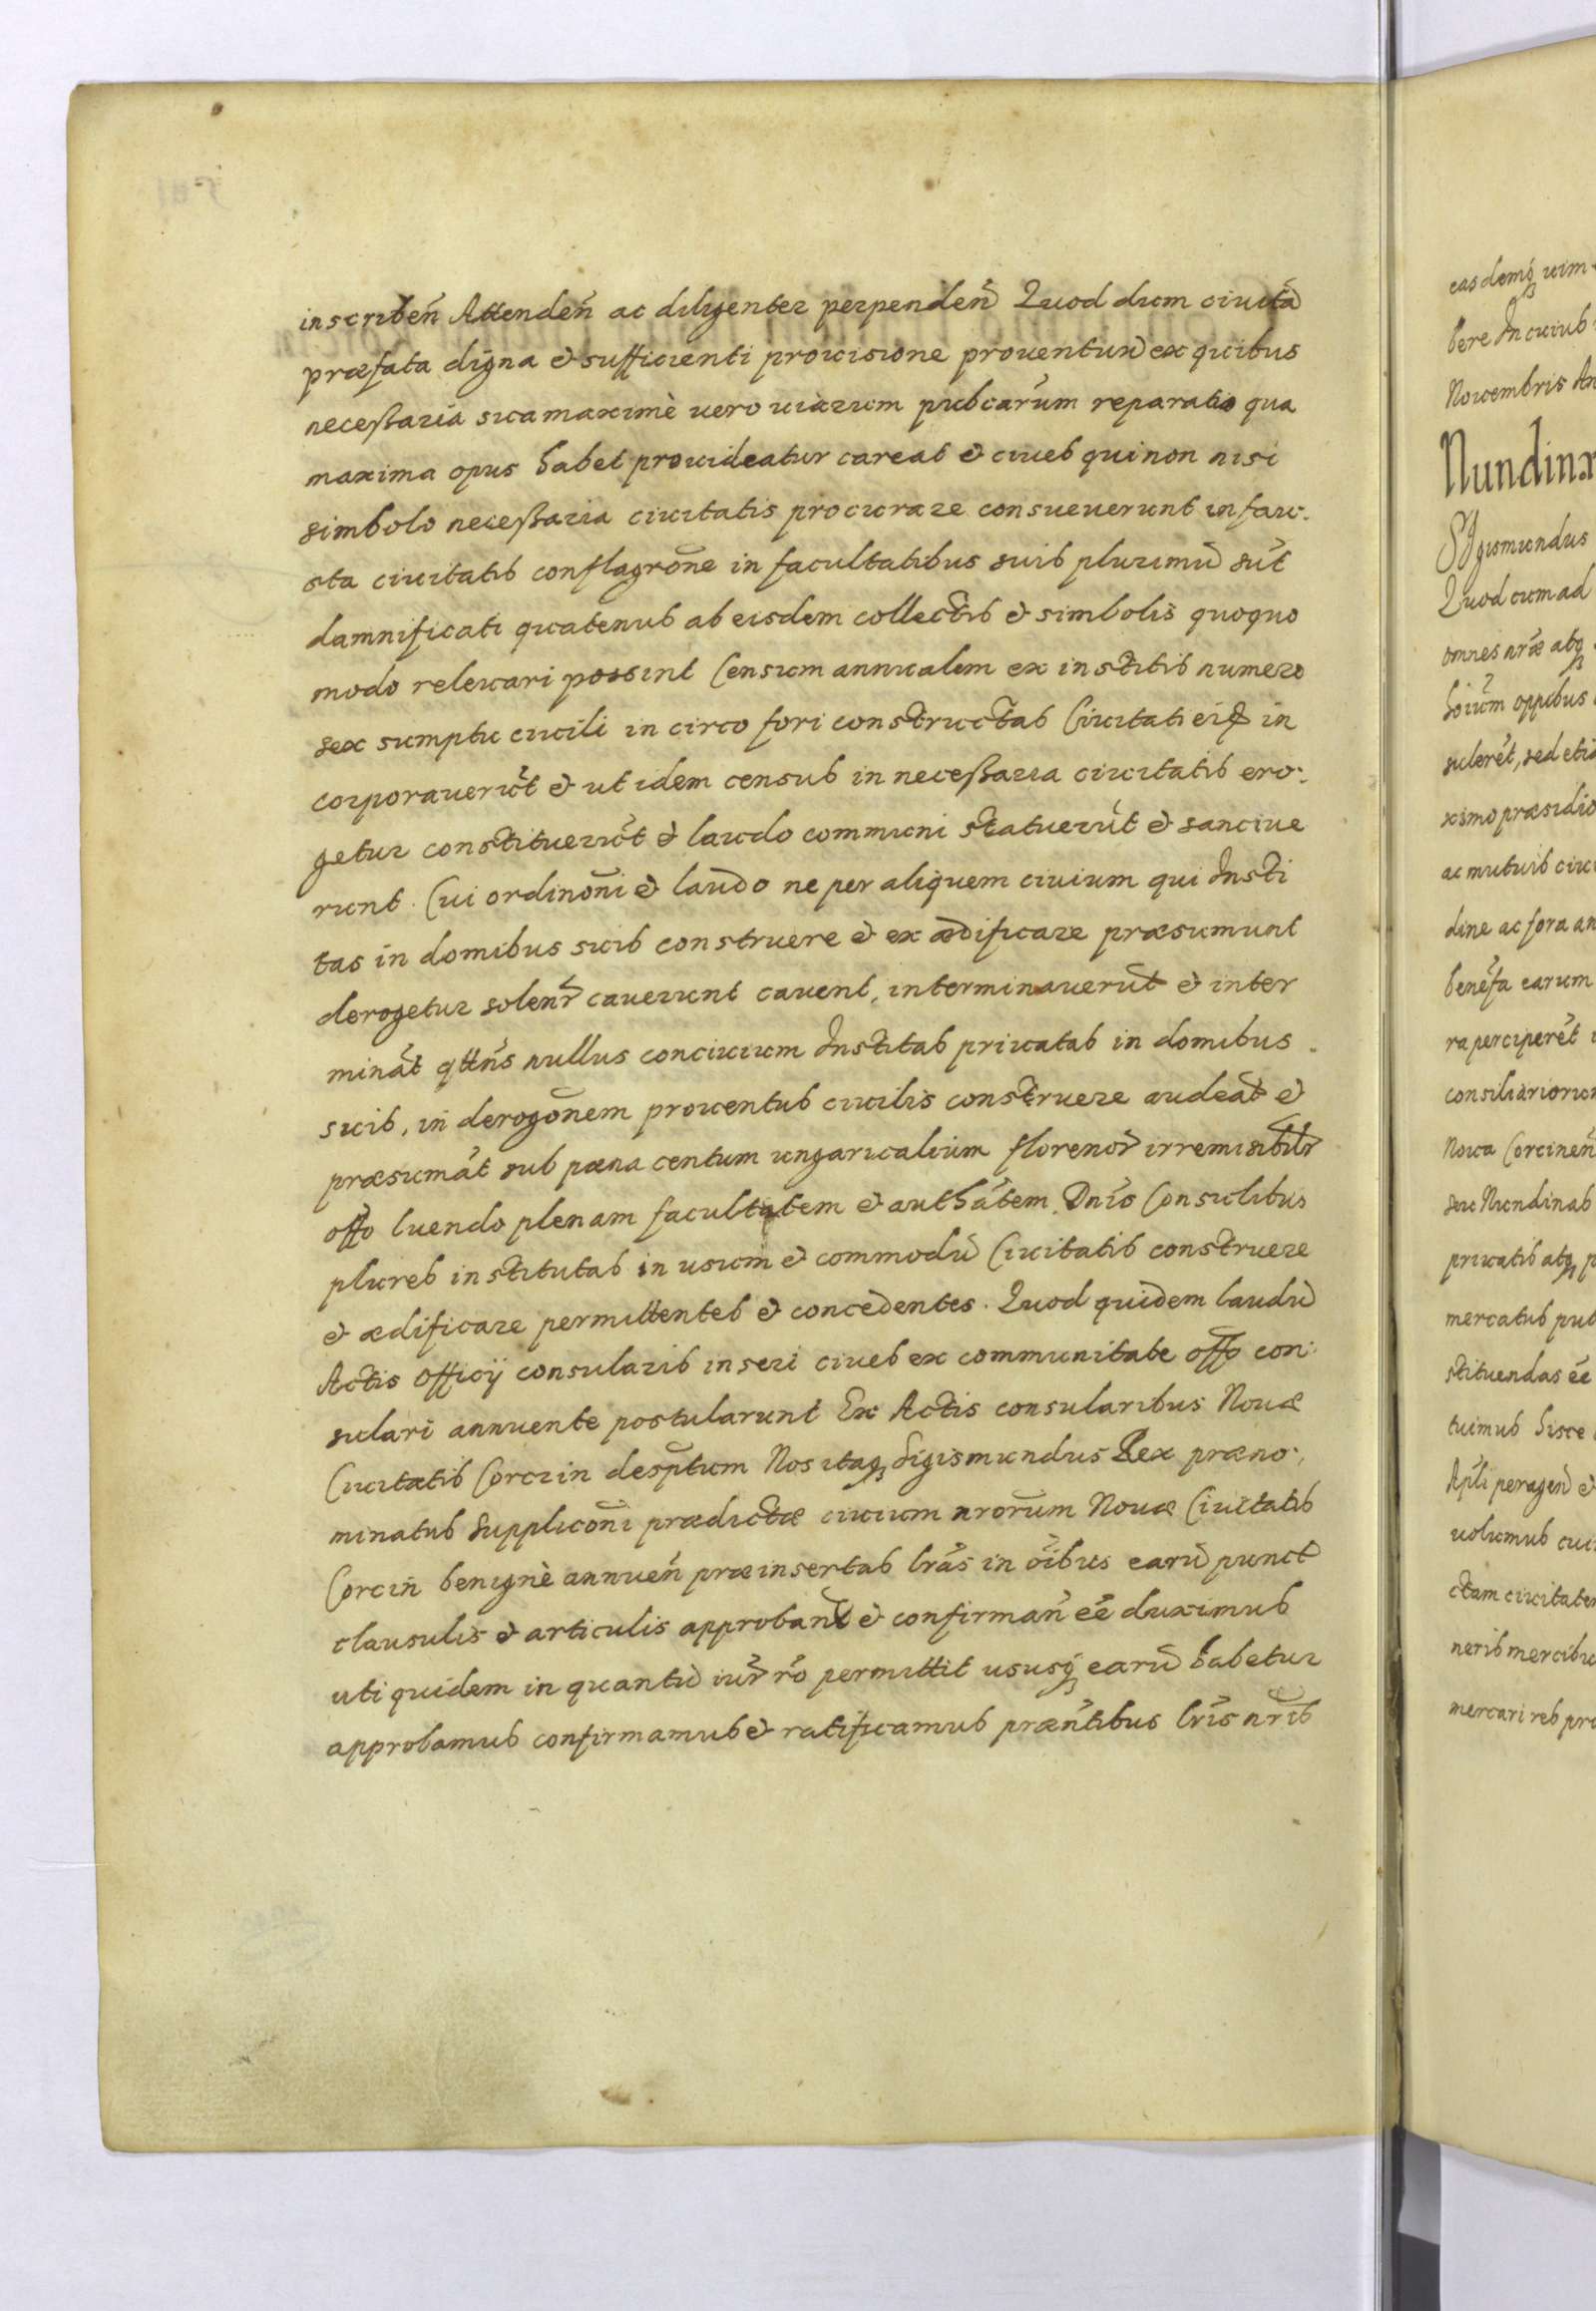 inscribeń Attendeń ac diligenter perpendeń Quod dum ciuitã
præfata digna et sufficienti prouisione prouentuũ ex quibus
necessaria sua maximè uero uiarum pubcarũm reparatio qua
maxima opus habet prouideatur careat et ciues qui non nisi
simbolo necessaria ciuitatis procurare consueuerunt infau-
sta ciuitatis conflagrõne in facultatibus suis plurimũ sũt
damnificati quatenus ab eisdem collectis et simbolis quoquo
modo releuari possint Censum annualem ex institis numero
sex sumptu ciuili in circo fori constructas Ciuitati eiq in
corporauerũt et ut idem census in necessaria ciuitatis ero-
getur constituerũt et laudo communi statuerũt et sanciue
runt. Cui ordinõni et laudo ne per aliquem ciuium qui Insti
tas in domibus suis construere et ex ædificare præsumunt
derogetur solenr̃ cauerunt cauent, interminauerũt et inter
minãt qttñs nullus conciuium Institas priuatas in domibus
suis, in derogõnem prouentus ciuilis construere audeãt et
præsumãt sub pæna centum ungaricalium florenor̃ irremisibilr̃
offo luendo plenam facultatem et authãtem Dnĩs Consulibus
plures institutas in usum et commodũ Ciuitatis construere
et ædificare permittentes et concedentes. Quod quidem laudũ
Actis Officij consularis inseri ciues ex communitate offo con-
sulari annuente postularunt Ex Actis consularibus Nouæ
Ciuitatis Corczin desptum Nos itaq Sigismundus Rex præno-
minatus Supplicõni prædictæ ciuium nrorũm Nouæ Ciuitatis
Corcin benignè annueń præinsertas lrãs in õibus earũ punct
clausulis et articulis approbanḋ et confirmań eẽ duximus
uti quidem in quantũ iur̃ rõ permittit ususq earũ habetur
approbamus confirmamus et ratificamus præñtibus lrĩs nrĩs
easdemq uim
bere In cuius
Nouembris An
Nundinæ
SIgismundus
Quod cum ad
omnes nrãe atq
hoium oppibus
suleret, sed etiã
ximo præsidio
ac mutuis ciui
dine ac fora an
benefa earum
ra perciperẽt
consiliariorum
Noua Corcineń
seu Nundinas
priuatis atq p
mercatus pub
stituendas eẽ
tuimus hisce
Apli perageń et
uolumus cui
ctam ciuitatem
neris mercibu
mercari res pro